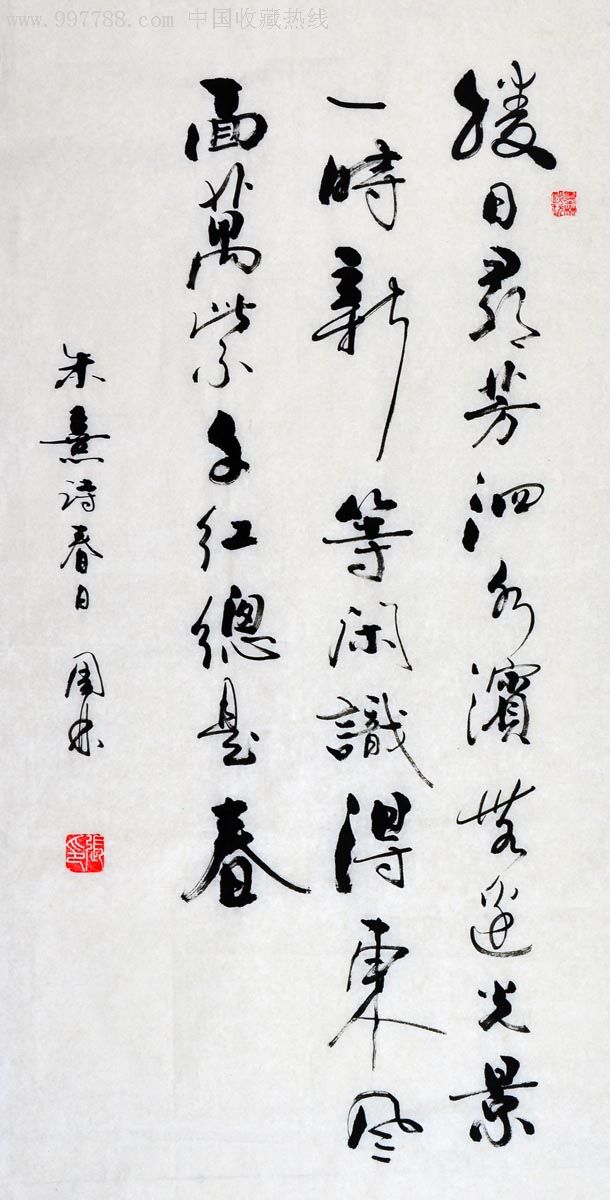 www.997788.com 中国收藏热线
勝日尋芳泗水濱無邊光景
一時新等閑識得東風
面萬紫千紅總是春
朱熹詩春日